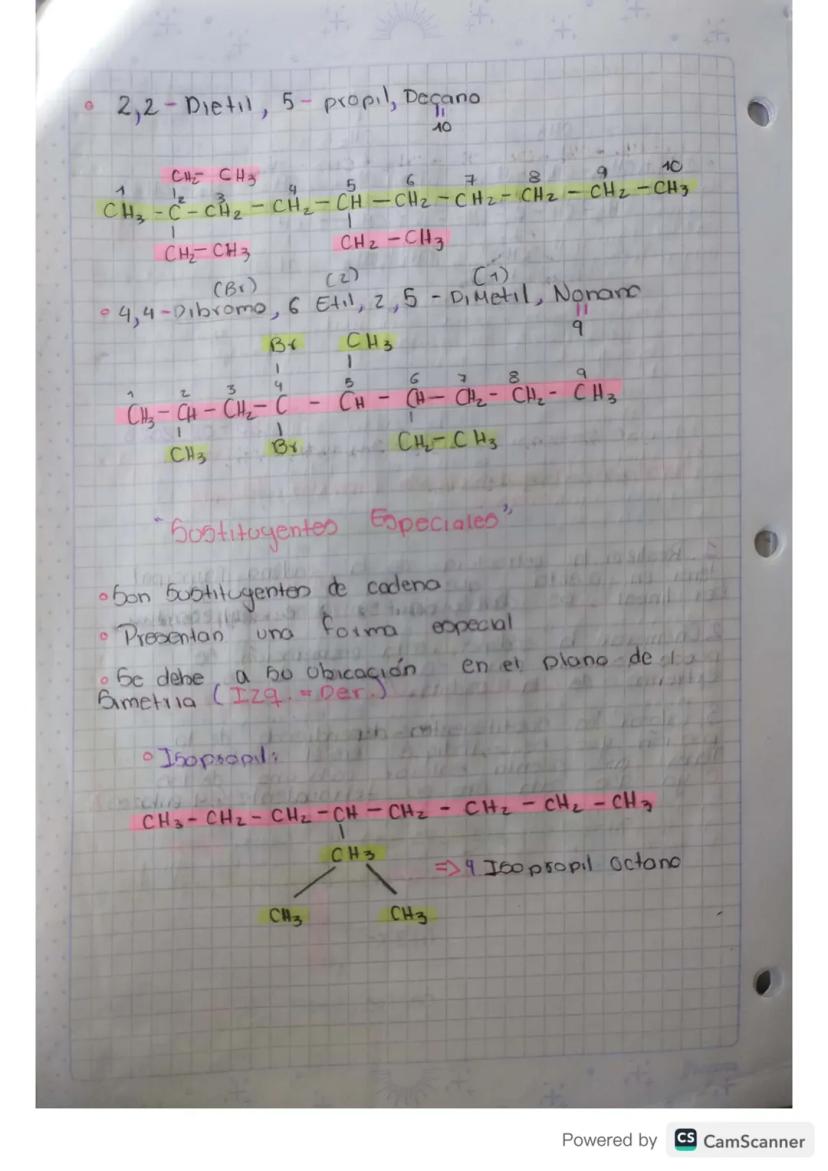 2,2-Dietil, 5- propil, Decano
10
CH2- CH3
1 2 3 4 5 6 7 8 9 10
CH3 - C - CH2 - CH2 - CH - CH2 - CH2 - CH2 - CH2 - CH3
CH2-CH3 CH2 -CH3
(Br) (2) (1)
4,4-Dibromo, 6 Etil, 2,5 - DiMetil, Nonano
9
Br CH3
1 2 3 4 5 6 7 8 9
CH3 - CH - CH2 - C - CH - CH - CH2 - CH2 - CH3
CH3 Br CH2-CH3
"Sustituyentes Especiales"
Son Sustituyentes de cadena
Presentan una forma especial
Se debe a su ubicación en el plano de
Simetria (Izq. = Der.)
Isopropil:
CH3- CH2 - CH2 - CH - CH2 - CH2 - CH2 - CH3
CH3
=> 4 Isopropil Octano
CH3 CH3
Powered by CS CamScanner